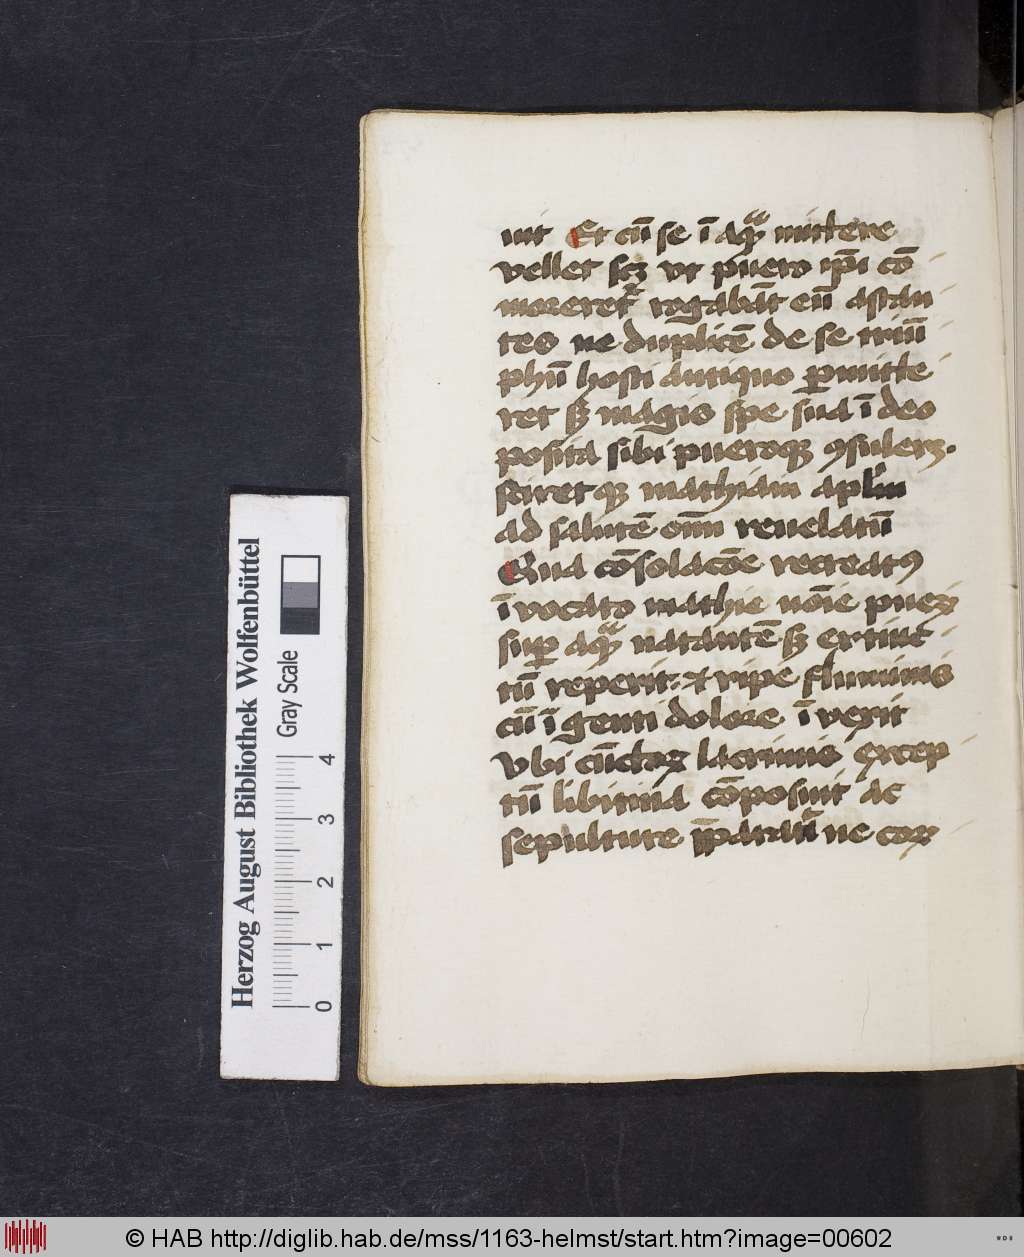 uit Et cū se ī aqͣ mittere
vellet scꝫ vt puero ip̄i cō
moueret᷑ rogabāt eū astan
tes ne duplicē de se triū
phū hosti antiquo ꝑmitte
ret sꝫ magis spe sua ī deo
posita sibi pueroqꝫ ꝯsulerꝫ.
sciret qꝫ mathiam aplm
ad salutē om̄ reuelatū
Qua cōsolacōe recreatꝰ
ī vocato mathie noīe pueꝝ
suꝑ aqͣ natantē sꝫ extinc
tū reperit. ⁊ ripe fluminis
cū īgenti dolore ī vexit
vbi cūctoꝝ lacrimis excep
tū libitina cōposuit ac
sepulture p̄parauit ne cor
Herzog August Bibliothek Wolfenbüttel
Gray Scale
0 1 2 3 4
© HAB http://diglib.hab.de/mss/1163-helmst/start.htm?image=00602